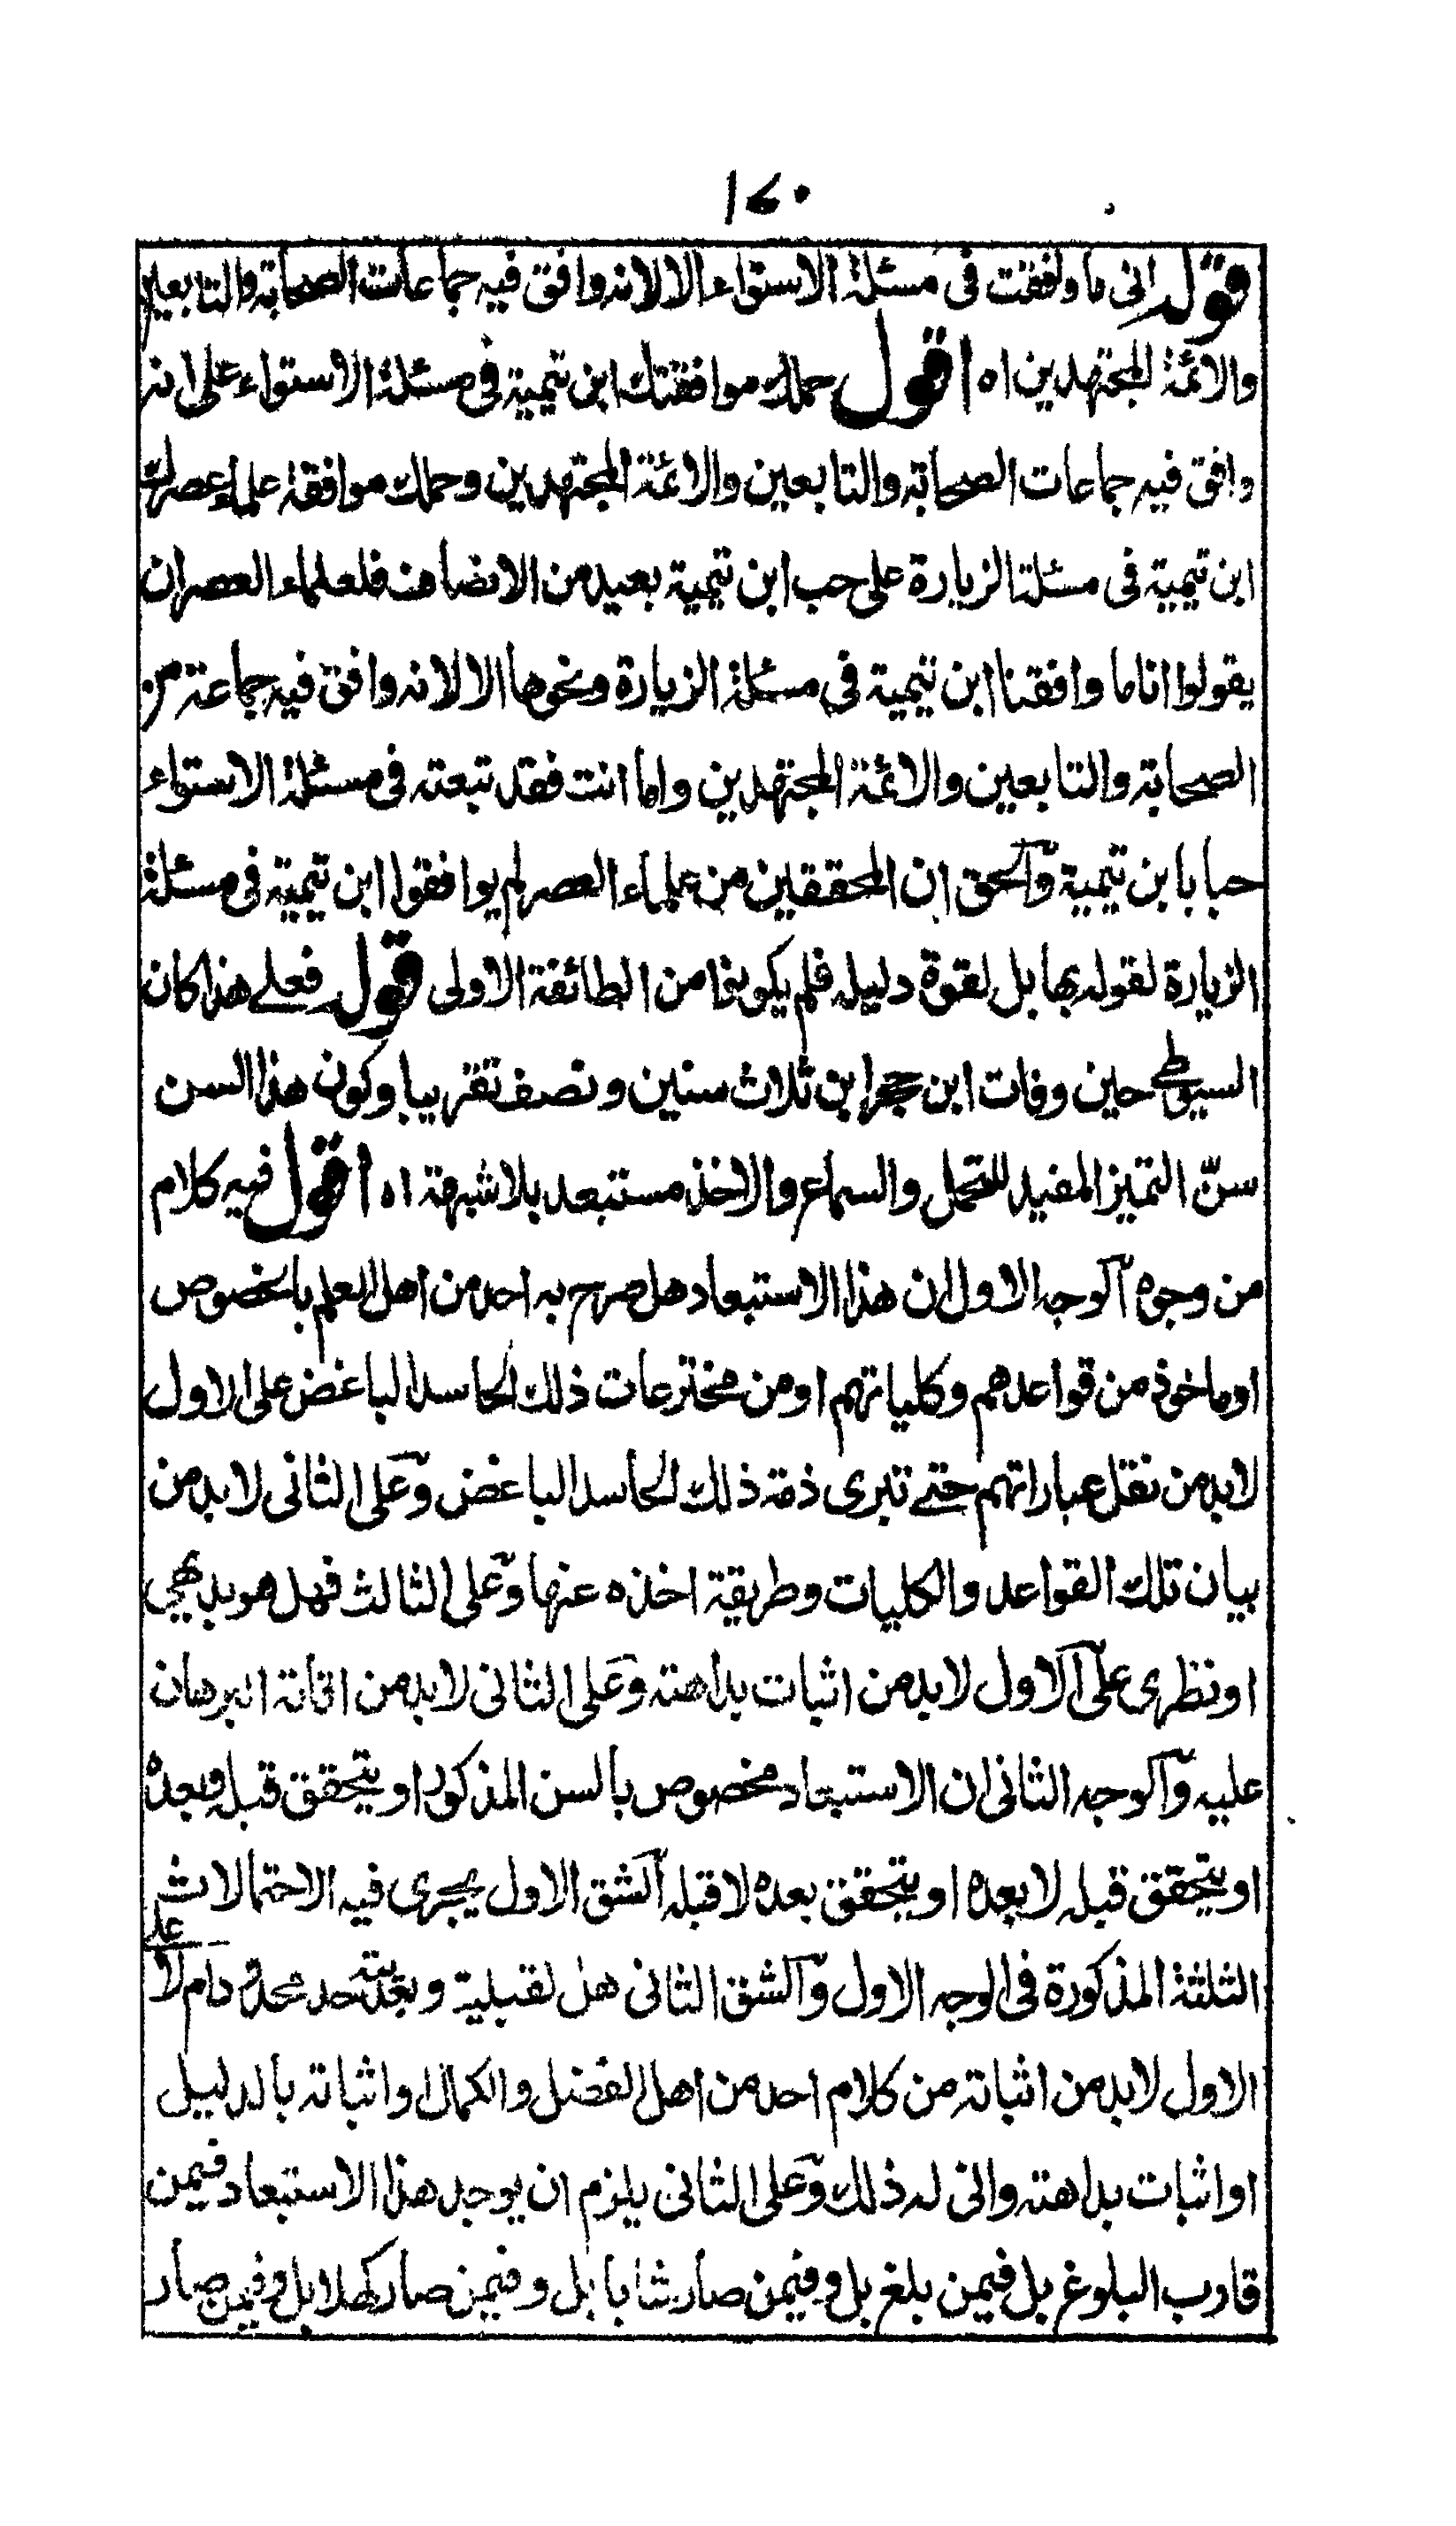 ١٤٠
قوله انى ما وافقت فى مسئلة الاستواء الا لانه وافق فيه جماعات الصحابة والتابعين
والائمة المجتهدين اه اقول حملك موافقتك ابن تيمية فى مسئلة الاستواء على انه
وافق فيه جماعات الصحابة والتابعين والائمة المجتهدين وحملك موافقة علماء عصرك
ابن تيمية فى مسئلة الزيارة على حب ابن تيمية بعيد من الانصاف فلعلماء العصر ان
يقولوا انا ما وافقنا ابن تيمية فى مسئلة الزيارة ونحوها الا لانه وافق فيه جماعة من
الصحابة والتابعين والائمة المجتهدين واما انت فقد تبعته فى مسئلة الاستواء
حبا بابن تيمية والحق ان المحققين من علماء العصر لم يوافقوا ابن تيمية فى مسئلة
الزيارة لقوله بها بل لقوة دليله فلم يكونوا من الطائفة الاولى قوله فعلے هذا كان
السيوطے حين وفات ابن حجر ابن ثلاث سنين ونصف تقريبا وكون هذا السن
سنّ التميز المفيد للتحمل والسماع والاخذ مستبعد بلا شبهة اه اقول فيه كلام
من وجوه الوجه الاول ان هذا الاستبعاد هل صرح به احد من اهل العلم بالخصوص
او ماخوذ من قواعدهم وكلياتهم او من مخترعات ذلك الحاسد الباغض على الاول
لا بد من نقل عباراتهم حتے تبرى ذمة ذلك الحاسد الباغض وعلى الثانى لا بد من
بيان تلك القواعد والكليات وطريقة اخذه عنها وعلى الثالث فهل هو بديهي
او نظرى على الاول لا بد من اثبات بداهته وعلى الثانى لا بد من اقامة البرهان
عليه والوجه الثانى ان الاستبعاد مخصوص بالسن المذكور او يتحقق قبله وبعده
او يتحقق قبله لا بعده او يتحقق بعده لا قبله الشق الاول يجرى فيه الاحتمالات
الثلثة المذكورة فى الوجه الاول والشق الثانى هل لقبلية وبعديته حد محدود ام لا على
الاول لا بد من اثباته من كلام احد من اهل الفضل والكمال او اثباته بالدليل
او اثبات بداهته وانى له ذلك وعلى الثانى يلزم ان يوجد هذا الاستبعاد فيمن
قارب البلوغ بل فيمن بلغ بل وفيمن صار شابا بل وفيمن صار كهلا بل وفيمن صار